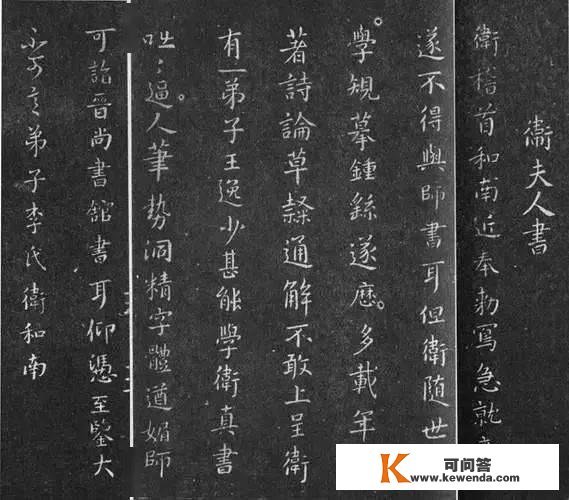 衛夫人書
衛稽首和南近奉勅寫急就
遂不得與師書耳但衛隨世
學規摹鍾繇遂歷多載年
著詩論草隸通解不敢上呈衛
有一弟子王逸少甚能學衛真書
咄〻逼人筆勢洞精字體遒媚師
可詣晉尚書舘書耳仰憑至鑒大
不可言弟子李氏衛和南
K 可问答
www.kewenda.com